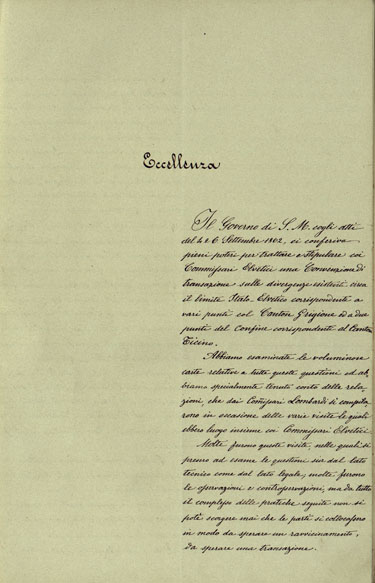 Eccellenza
Il Governo di S. M. cogli atti
del 4 e 6 Settembre 1862, ci conferiva
pieni poteri per trattare e stipulare coi
Commissari Elvetici una Convenzione di
transazione sulle divergenze esistenti circa
il limite Italo-Elvetico corrispondenti a
vari punti col Canton Grigione ed a due
punti del Confine corrispondente al Canton
Ticino.
Abbiamo esaminate le voluminose
carte relative a tutte queste questioni ed ab,
biamo specialmente tenuto conto delle rela,
zioni, che dai Comissari Lombardi si compila,
rono in occasione delle varie visite le quali
ebbero luogo insieme coi Commissari Elvetici
Molte furono queste visite, nelle quali si
presero ad esame le questioni sia dal lato
tecnico come dal lato legale, molte furono
le osservazioni e controsservazioni, ma da tutto
il complesso delle pratiche seguite non si
potè scorgere mai che le parti si collocassero
in modo da sperare un ravvicinamento,
da sperare una transazione.